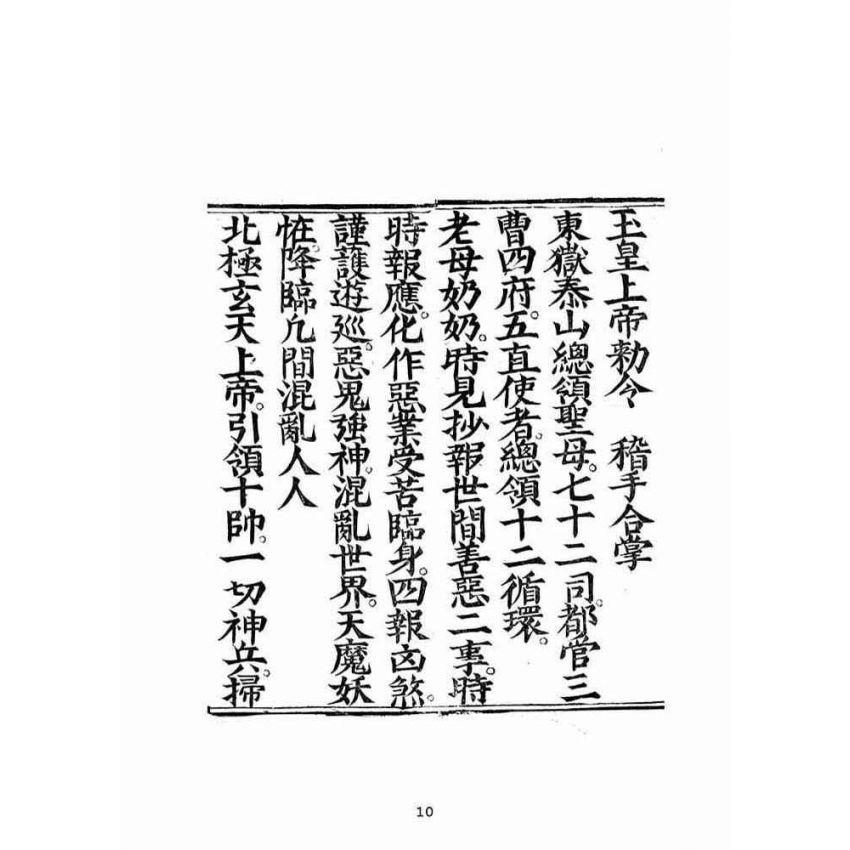 玉皇上帝勅令　稽手合掌
東嶽泰山總領聖母。七十二司。都管三
曹四府。五直使者。總領十二循環。
老母奶奶。時見抄報世間善惡二事。時
時報應。化作惡業受苦臨身。四報凶煞。
謹護遊廵。惡鬼強神。混亂世界。天魔妖
恠。降臨凢間混亂人人
北極玄天上帝。引領十帥。一切神兵。掃
10